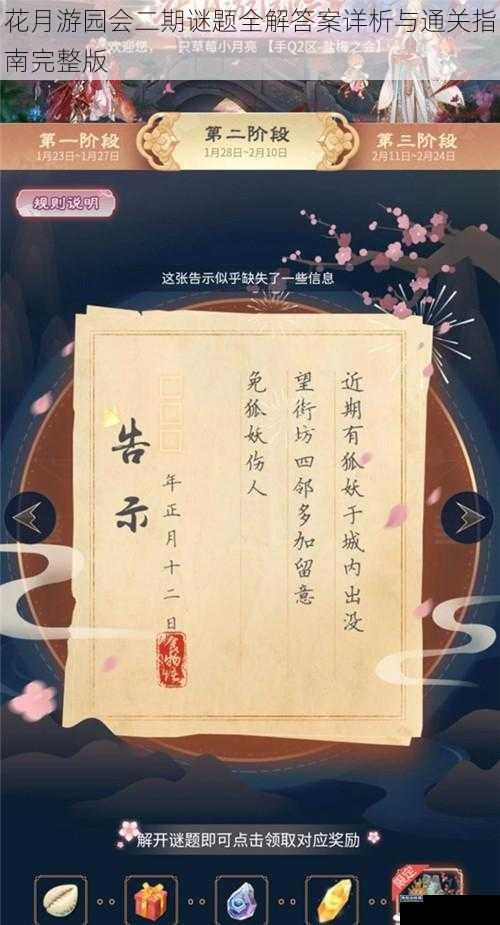 花月游园会二期谜题全解答案详析与通关指
南完整版
欢迎您，一只草莓小月亮 【手Q2区-盐梅之会】
第一阶段
1月23日~1月27日
第二阶段
1月28日~2月10日
第三阶段
2月11日~2月24日
规则说明
这张告示似乎缺失了一些信息
近期有狐妖于城内出没
望街坊四邻多加留意
免狐妖伤人
□□□年正月十二日
告示
食物语
解开谜题即可点击领取对应奖励
限定